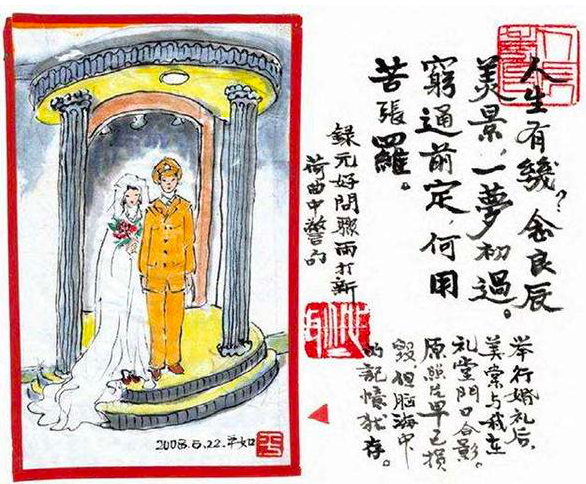 人生有幾？念良辰
美景，一夢初過。
窮通前定何用
苦張羅。
錄元好問驟雨打新
荷曲中警句
举行婚礼后，
美棠与我在
礼堂門口合影。
原照片早已損
毁，但脑海中
的記憶犹存。
2008.6.22.平如